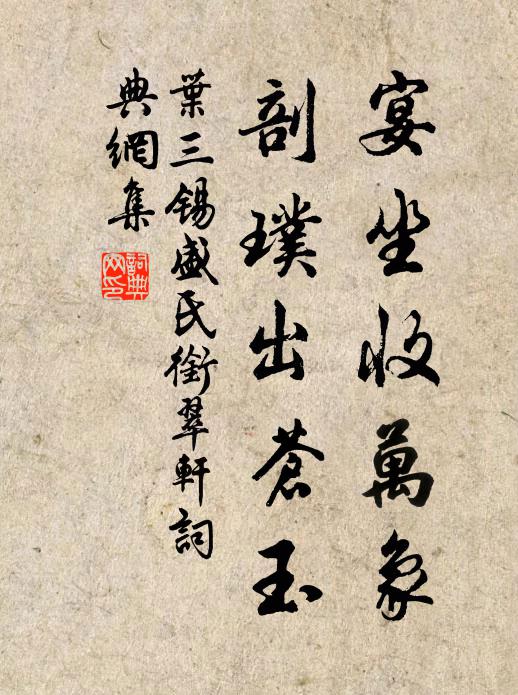 宴坐收萬象
剖璞出蒼玉
葉三錫盛氏銜翠軒詞
典網集
詞典網印